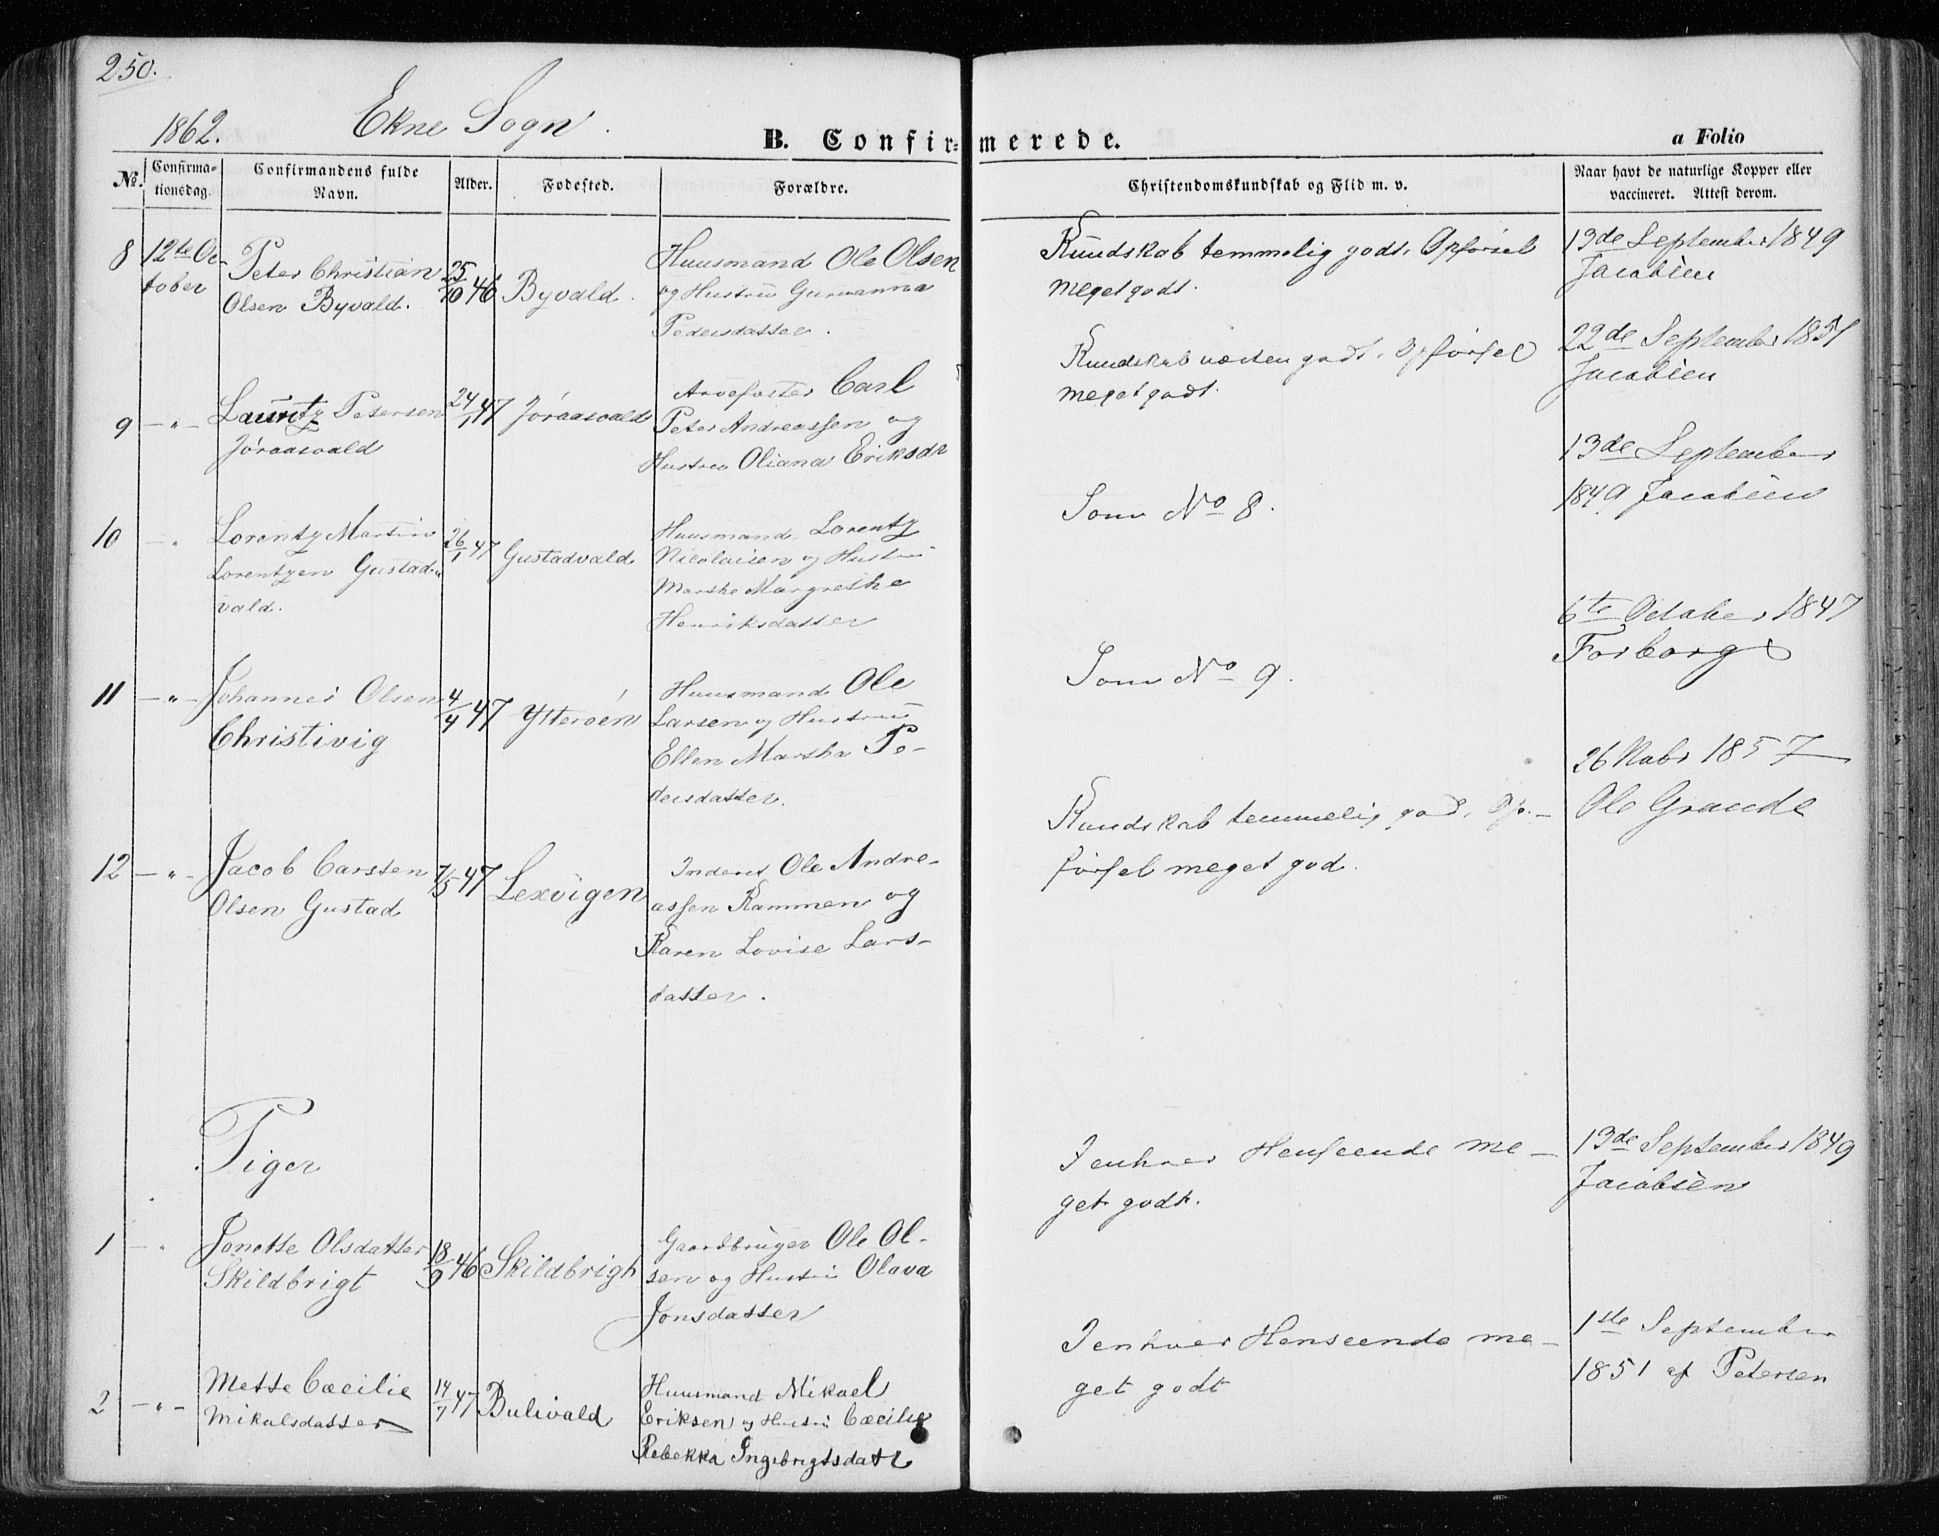 250.
1862. Ekne Sogn.
B. Confirmerede.
a Folio
No.
Confirmationsdag.
Confirmandens fulde Navn.
Alder.
Fødested.
Forældre.
Christendomskundskab og Flid m. v.
Naar havt de naturlige Kopper eller
vaccineret. Attest derom.
8 12te October
Peter Christian
Olsen Byvald.
25/10 46 Byvald.
Huusmand Ole Olsen
og Hustru Gurianna
Pedersdatter.
Kundskab temmelig godt. Opførsel
meget godt.
13de September 1849
Jacobsen
9 - " - Lauritz Petersen
Jøraasvald
24/1 47 Jøraasvald
Carl
Peter Andreassen og
Hustru Oliana Eriksdr
Kundskab næsten godt. Opførsel
meget godt.
22de September 1851
Jacobsen
10 - " Lorentz Martin
Lorentzen Gustad-
vald.
26/1 47 Gustadvald
Huusmand Lorentz
Nicolaisen og Hustru
Marthe Margrethe
Henriksdatter
Som No 8.
13de September
1849 Jacobsen
11 - " - Johannes Olsen
Christivig
4/4 47 Ytterøen
Huusmand Ole
Larsen og Hustru
Ellen Martha Pe-
dersdatter.
Som No 9.
6te October 1847
Forborg
12 - " - Jacob Carsten
Olsen Gustad
7/5 47 Lexvigen
Inderst Ole Andre-
assen Rammen og
Karen Lovise Lars-
datter.
Kundskab temmelig god. Op-
førsel meget god.
26 Nobr 1857
Ole Grande
Piger
1 - " Jonette Olsdatter
Skildbrigt
18/9 46 Skildbrigh
Gaardbruger Ole Ol-
sen og Hustru Olava
Jonsdatter
I enhver Henseende me-
get godt.
13de September 1849
Jacobsen
2 - " - Mette Cæcilie
Mikalsdatter
14/7 47 Bulivald
Huusmand Mikael
Eriksen og Hustru Cæcilie
Rebekka Ingebrigtsdatr
I enhver Henseende me-
get godt
1ste September
1851 af Petersen